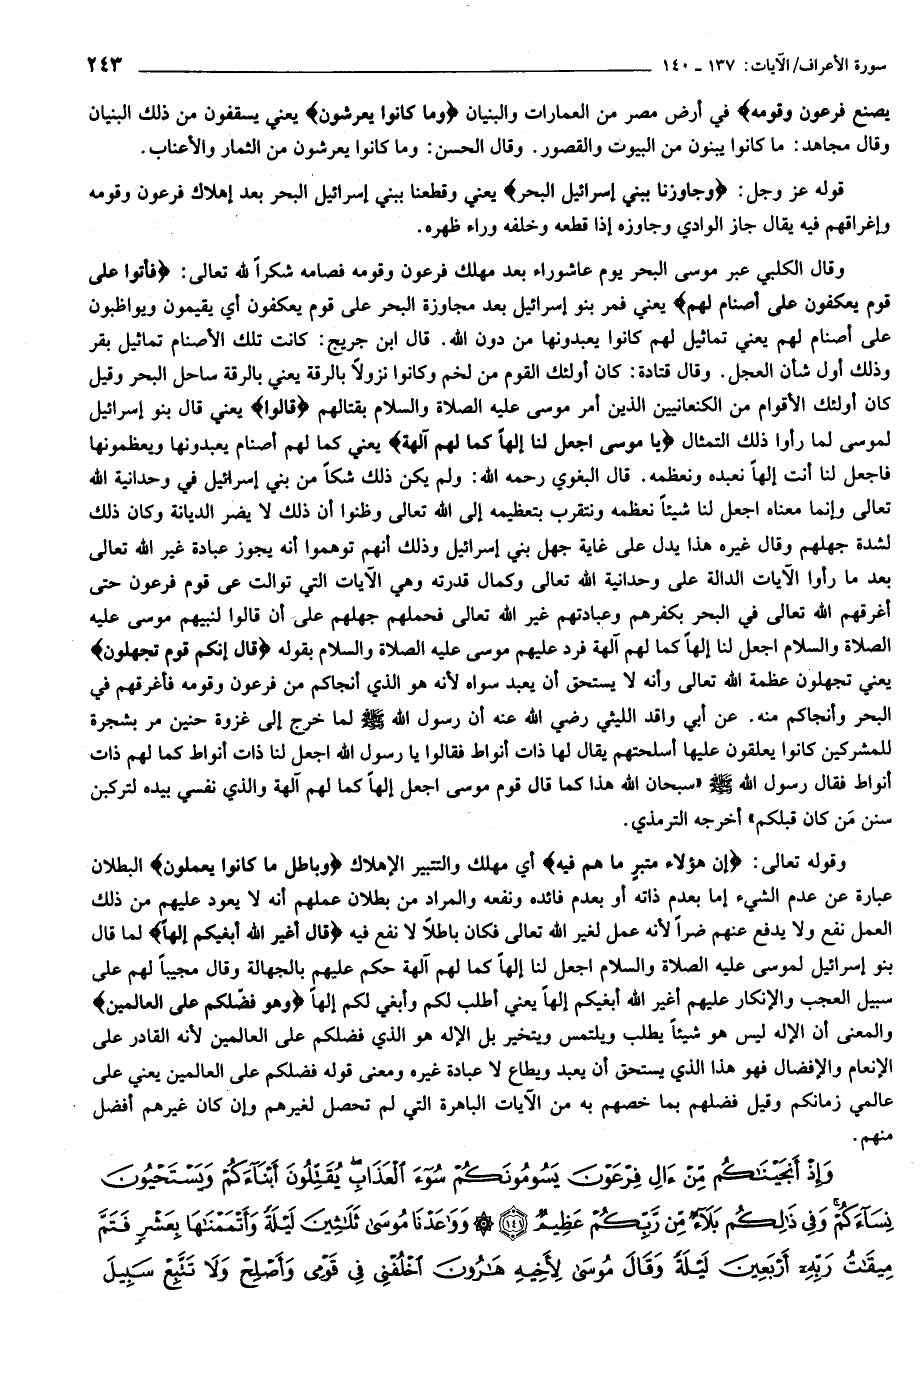 سورة الأعراف/ الآيات: ١٣٧ ـ ١٤٠ ٢٤٣
يصنع فرعون وقومه﴾ في أرض مصر من العمارات والبنيان ﴿وما كانوا يعرشون﴾ يعني يسقفون من ذلك البنيان
وقال مجاهد: ما كانوا يبنون من البيوت والقصور. وقال الحسن: وما كانوا يعرشون من الثمار والأعناب.
قوله عز وجل: ﴿وجاوزنا ببني إسرائيل البحر﴾ يعني وقطعنا ببني إسرائيل البحر بعد إهلاك فرعون وقومه
وإغراقهم فيه يقال جاز الوادي وجاوزه إذا قطعه وخلفه وراء ظهره.
وقال الكلبي عبر موسى البحر يوم عاشوراء بعد مهلك فرعون وقومه فصامه شكراً لله تعالى: ﴿فأتوا على
قوم يعكفون على أصنام لهم﴾ يعني فمر بنو إسرائيل بعد مجاوزة البحر على قوم يعكفون أي يقيمون ويواظبون
على أصنام لهم يعني تماثيل لهم كانوا يعبدونها من دون الله. قال ابن جريج: كانت تلك الأصنام تماثيل بقر
وذلك أول شأن العجل. وقال قتادة: كان أولئك القوم من لخم وكانوا نزولاً بالرقة يعني بالرقة ساحل البحر وقيل
كان أولئك الأقوام من الكنعانيين الذين أمر موسى عليه الصلاة والسلام بقتالهم ﴿قالوا﴾ يعني قال بنو إسرائيل
لموسى لما رأوا ذلك التمثال ﴿يا موسى اجعل لنا إلهاً كما لهم آلهة﴾ يعني كما لهم أصنام يعبدونها ويعظمونها
فاجعل لنا أنت إلهاً نعبده ونعظمه. قال البغوي رحمه الله: ولم يكن ذلك شكاً من بني إسرائيل في وحدانية الله
تعالى وإنما معناه اجعل لنا شيئاً نعظمه ونتقرب بتعظيمه إلى الله تعالى وظنوا أن ذلك لا يضر الديانة وكان ذلك
لشدة جهلهم وقال غيره هذا يدل على غاية جهل بني إسرائيل وذلك أنهم توهموا أنه يجوز عبادة غير الله تعالى
بعد ما رأوا الآيات الدالة على وحدانية الله تعالى وكمال قدرته وهي الآيات التي توالت عى قوم فرعون حتى
أغرقهم الله تعالى في البحر بكفرهم وعبادتهم غير الله تعالى فحملهم جهلهم على أن قالوا لنبيهم موسى عليه
الصلاة والسلام اجعل لنا إلهاً كما لهم آلهة فرد عليهم موسى عليه الصلاة والسلام بقوله ﴿قال إنكم قوم تجهلون﴾
يعني تجهلون عظمة الله تعالى وأنه لا يستحق أن يعبد سواه لأنه هو الذي أنجاكم من فرعون وقومه فأغرقهم في
البحر وأنجاكم منه. عن أبي واقد الليثي رضي الله عنه أن رسول الله ﷺ لما خرج إلى غزوة حنين مر بشجرة
للمشركين كانوا يعلقون عليها أسلحتهم يقال لها ذات أنواط فقالوا يا رسول الله اجعل لنا ذات أنواط كما لهم ذات
أنواط فقال رسول الله ﷺ «سبحان الله هذا كما قال قوم موسى اجعل إلهاً كما لهم آلهة والذي نفسي بيده لتركبن
سنن مَن كان قبلكم» أخرجه الترمذي.
وقوله تعالى: ﴿إن هؤلاء متبرٍ ما هم فيه﴾ أي مهلك والتتبير الإهلاك ﴿وباطل ما كانوا يعملون﴾ البطلان
عبارة عن عدم الشيء إما بعدم ذاته أو بعدم فائده ونفعه والمراد من بطلان عملهم أنه لا يعود عليهم من ذلك
العمل نفع ولا يدفع عنهم ضراً لأنه عمل لغير الله تعالى فكان باطلاً لا نفع فيه ﴿قال أغير الله أبغيكم إلهاً﴾ لما قال
بنو إسرائيل لموسى عليه الصلاة والسلام اجعل لنا إلهاً كما لهم آلهة حكم عليهم بالجهالة وقال مجيباً لهم على
سبيل العجب والإنكار عليهم أغير الله أبغيكم إلهاً يعني أطلب لكم وأبغي لكم إلهاً ﴿وهو فضّلكم على العالمين﴾
والمعنى أن الإله ليس هو شيئاً يطلب ويلتمس ويتخير بل الإله هو الذي فضلكم على العالمين لأنه القادر على
الإنعام والإفضال فهو هذا الذي يستحق أن يعبد ويطاع لا عبادة غيره ومعنى قوله فضلكم على العالمين يعني على
عالمي زمانكم وقيل فضلهم بما خصهم به من الآيات الباهرة التي لم تحصل لغيرهم وإن كان غيرهم أفضل
منهم.
وَإِذْ أَنجَيْنَٰكُم مِّنْ ءَالِ فِرْعَوْنَ يَسُومُونَكُمْ سُوٓءَ ٱلْعَذَابِ ۖ يُقَتِّلُونَ أَبْنَآءَكُمْ وَيَسْتَحْيُونَ
نِسَآءَكُمْ ۚ وَفِى ذَٰلِكُم بَلَآءٌ مِّن رَّبِّكُمْ عَظِيمٌ ﴿١٤١﴾ ۞ وَوَٰعَدْنَا مُوسَىٰ ثَلَٰثِينَ لَيْلَةً وَأَتْمَمْنَٰهَا بِعَشْرٍ فَتَمَّ
مِيقَٰتُ رَبِّهِۦٓ أَرْبَعِينَ لَيْلَةً ۚ وَقَالَ مُوسَىٰ لِأَخِيهِ هَٰرُونَ ٱخْلُفْنِى فِى قَوْمِى وَأَصْلِحْ وَلَا تَتَّبِعْ سَبِيلَ